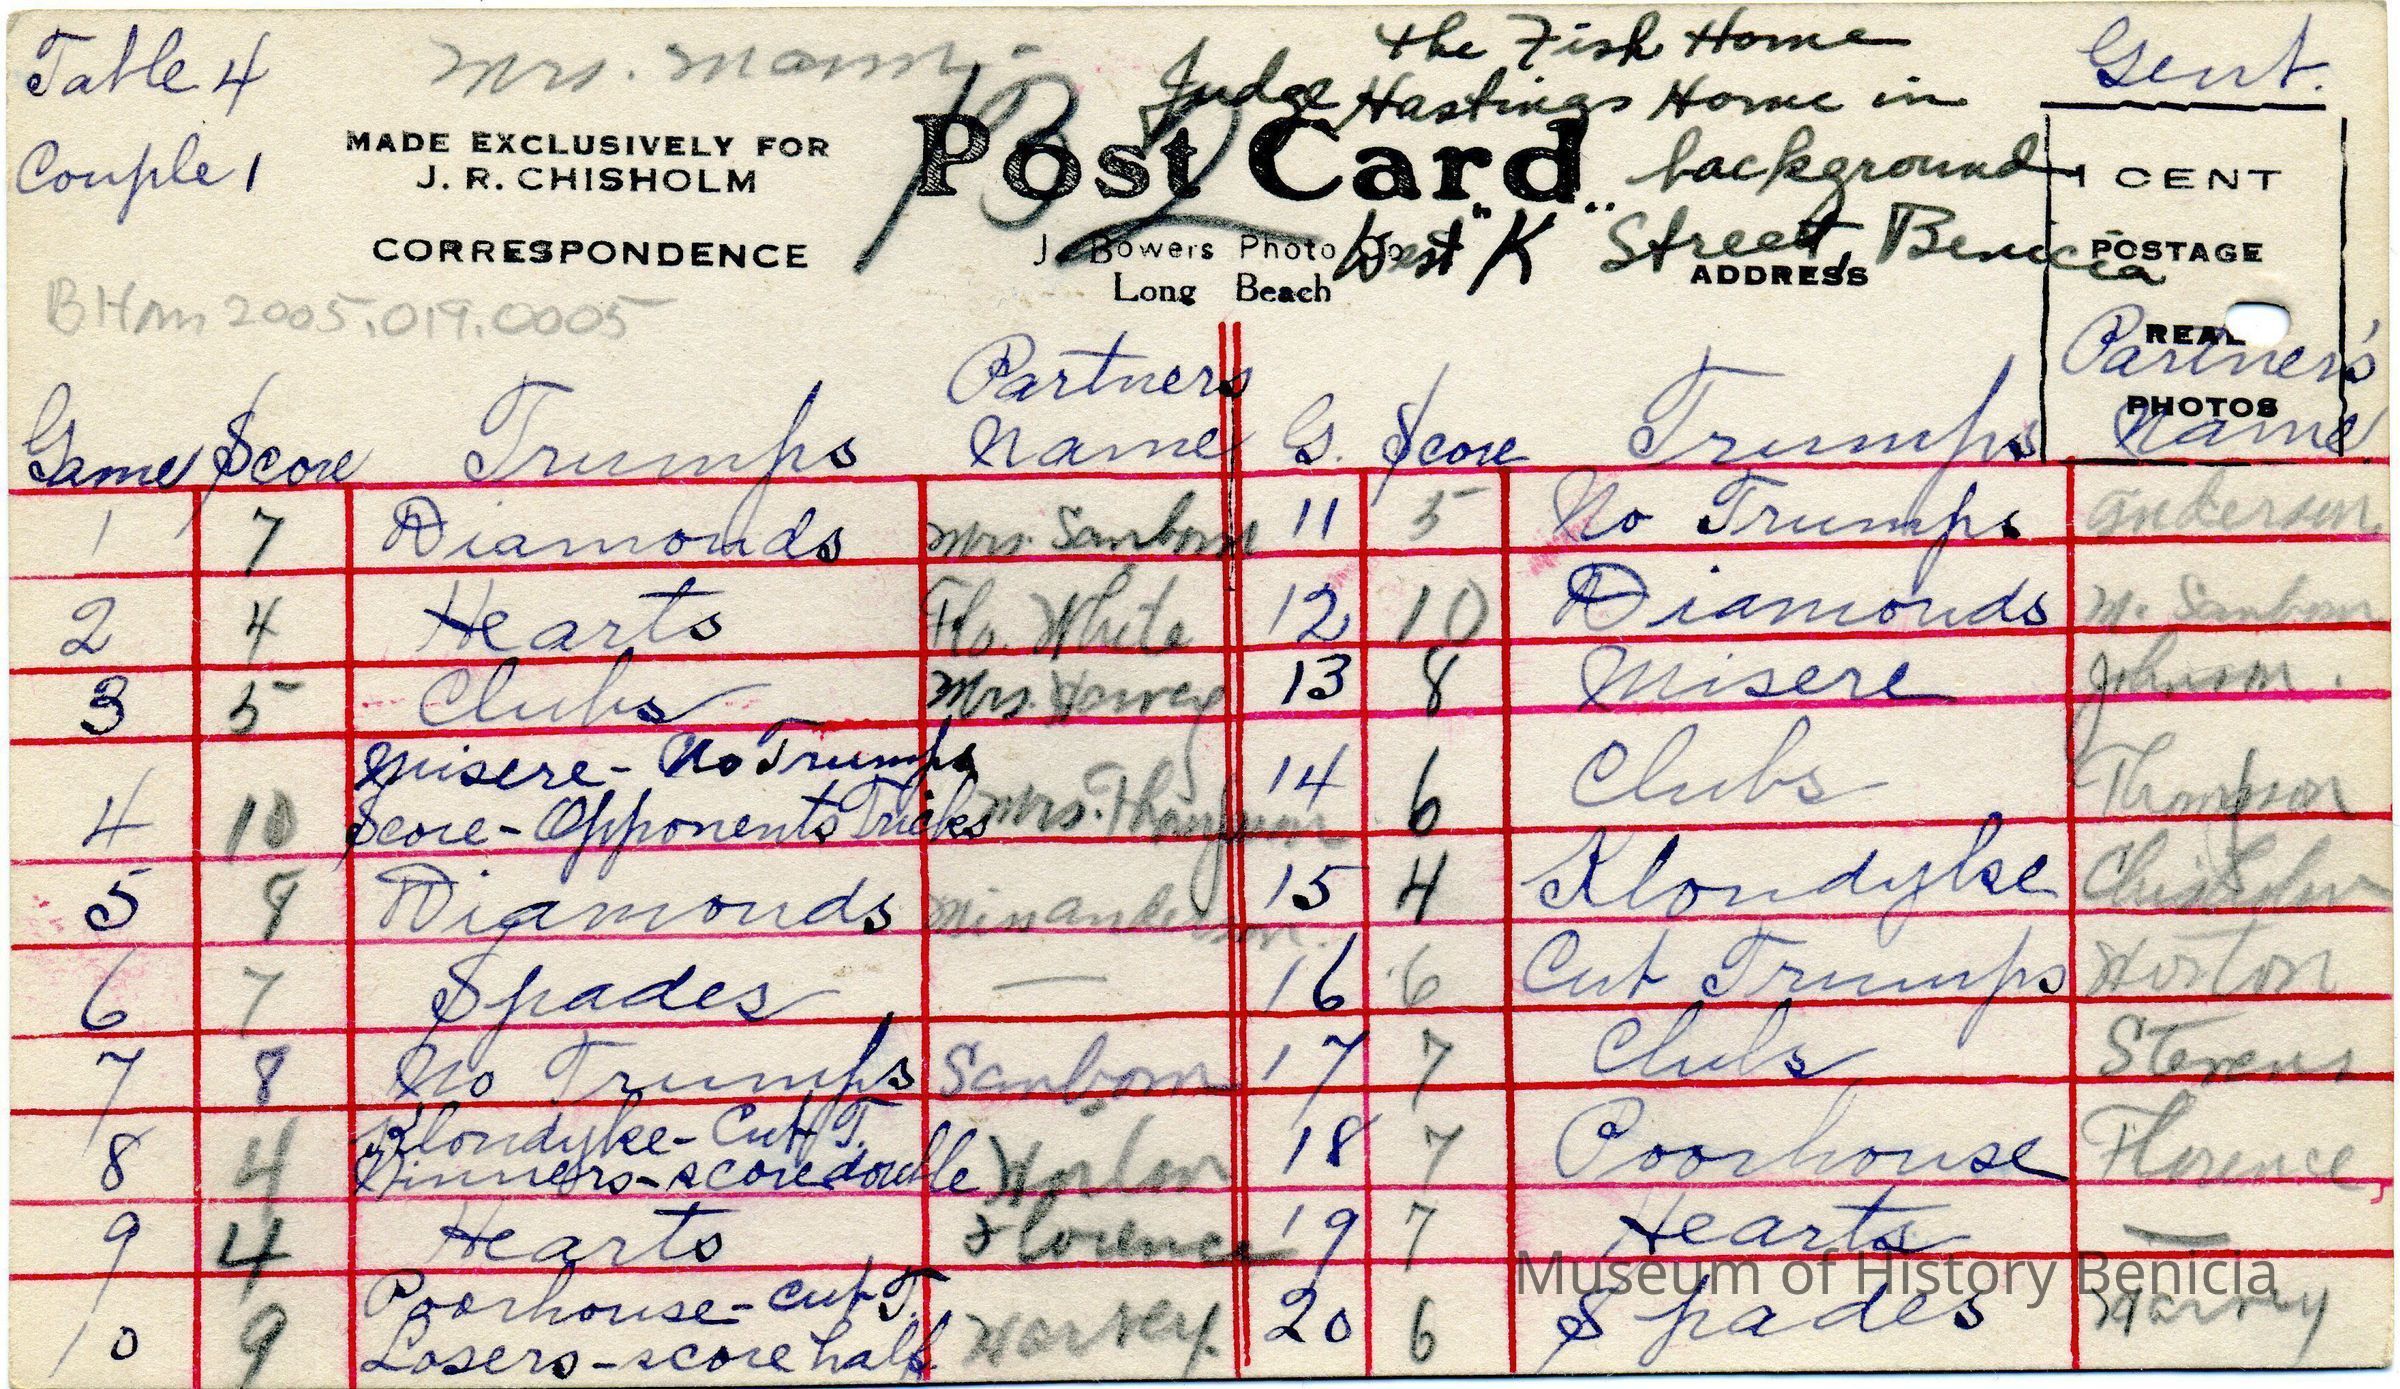 Table 4
Couple 1
Mrs. Mann
MADE EXCLUSIVELY FOR
J. R. CHISHOLM
CORRESPONDENCE
BHm 2005.019.0005
Post Card
J. Bowers Photo Co
Long Beach
132
the Fish Home
Judge Hastings Home in
background
West "K" Street, Benicia
ADDRESS
Gent.
1 CENT
POSTAGE
REAL
PHOTOS
Game Score Trumps Partners Name G. Score Trumps Partner's Name
1 7 Diamonds Mrs. Sanborn 11 5 No Trumps Anderson
2 4 Hearts Flo. White 12 10 Diamonds M. Sanborn
3 5 Clubs Mrs. Harvey 13 8 Misere Johnson.
4 10 Misere - No Trumps Score - Opponents Tricks Mrs. Thompson 14 6 Clubs Thompson
5 8 Diamonds Miss Anderson. 15 4 Klondyke Chisholm
6 7 Spades — 16 6 Cut Trumps Horton
7 8 No Trumps Sanborn 17 7 Clubs Stevens
8 4 Klondyke - Cut T. Winners - score double Horton 18 7 Poorhouse Florence
9 4 Hearts Florence 19 7 Hearts —
10 9 Poorhouse - Cut T. Losers - score half Harvey. 20 6 Spades Harvey
Museum of History Benicia